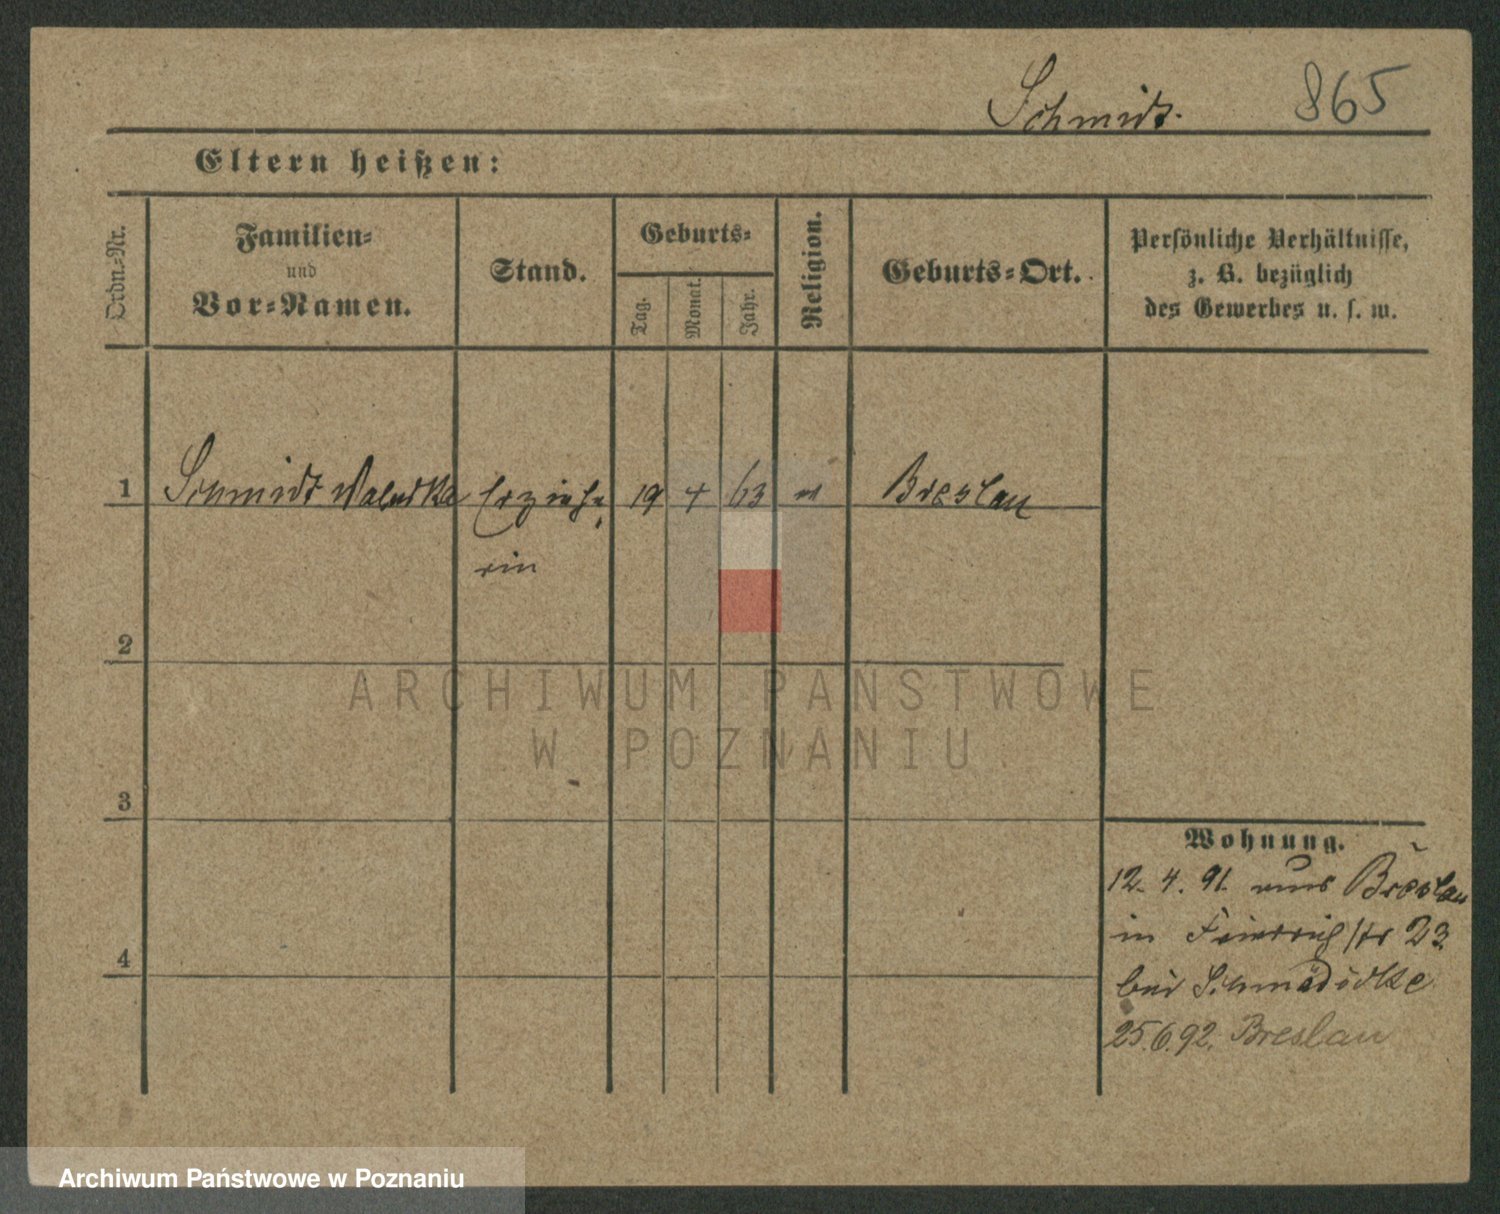 Schmidt. 865
Eltern heißen:
Ordn.-Nr.
Familien-
und
Vor-Namen.
Stand.
Geburts-
Tag.
Monat.
Jahr.
Religion.
Geburts-Ort.
Persönliche Verhältnisse,
z. B. bezüglich
des Gewerbes u. s. w.
1 Schmidt Erziehe 19 4 63 Breslau
rin
2
3
4
Wohnung.
12. 4. 91. aus Breslau
in Friedrichstr 23
bei
25.6.92. Breslau
ARCHIWUM PAŃSTWOWE
W POZNANIU
Archiwum Państwowe w Poznaniu